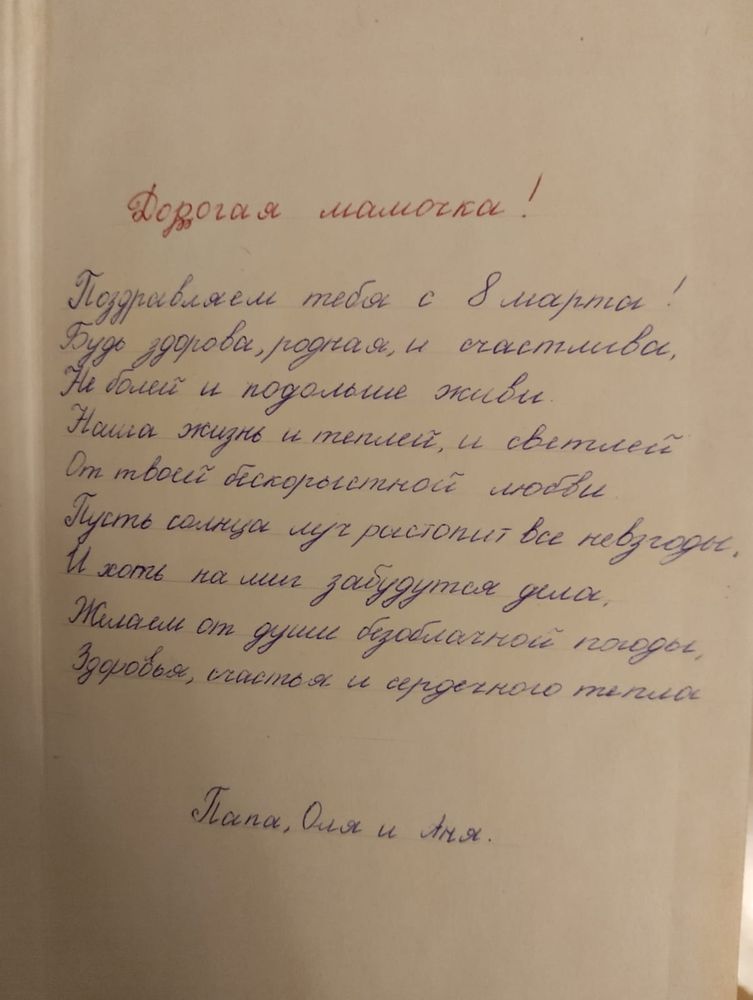 Дорогая мамочка!
Поздравляем тебя с 8 марта!
Будь здорова, родная, и счастлива,
Не болей и подольше живи.
Наша жизнь и теплей, и светлей
От твоей бескорыстной любви.
Пусть солнца луч растопит все невзгоды,
И хоть на миг забудутся дела,
Желаем от души безоблачной погоды,
Здоровья, счастья и сердечного тепла
Папа, Оля и Аня.